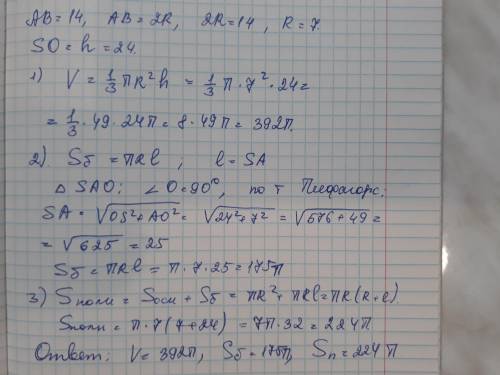 AB = 14, AB = 2R, 2R = 14, R = 7.
SO = h = 24.
1) V = 1/3 πR²h = 1/3 π · 7² · 24 =
= 1/3 · 49 · 24π = 8 · 49π = 392π.
2) Sб = πRl ; l = SA
△ SAO; ∠O = 90°, по т Пифагора:
SA = √(OS² + AO²) = √(24² + 7²) = √(576 + 49) =
= √625 = 25
Sб = πRl = π · 7 · 25 = 175π
3) Sполн = Sосн + Sб = πR² + πRl = πR(R + l)
Sполн = π · 7(7 + 24) = 7π · 32 = 224π
Ответ: V = 392π, Sб = 175π, Sп = 224π